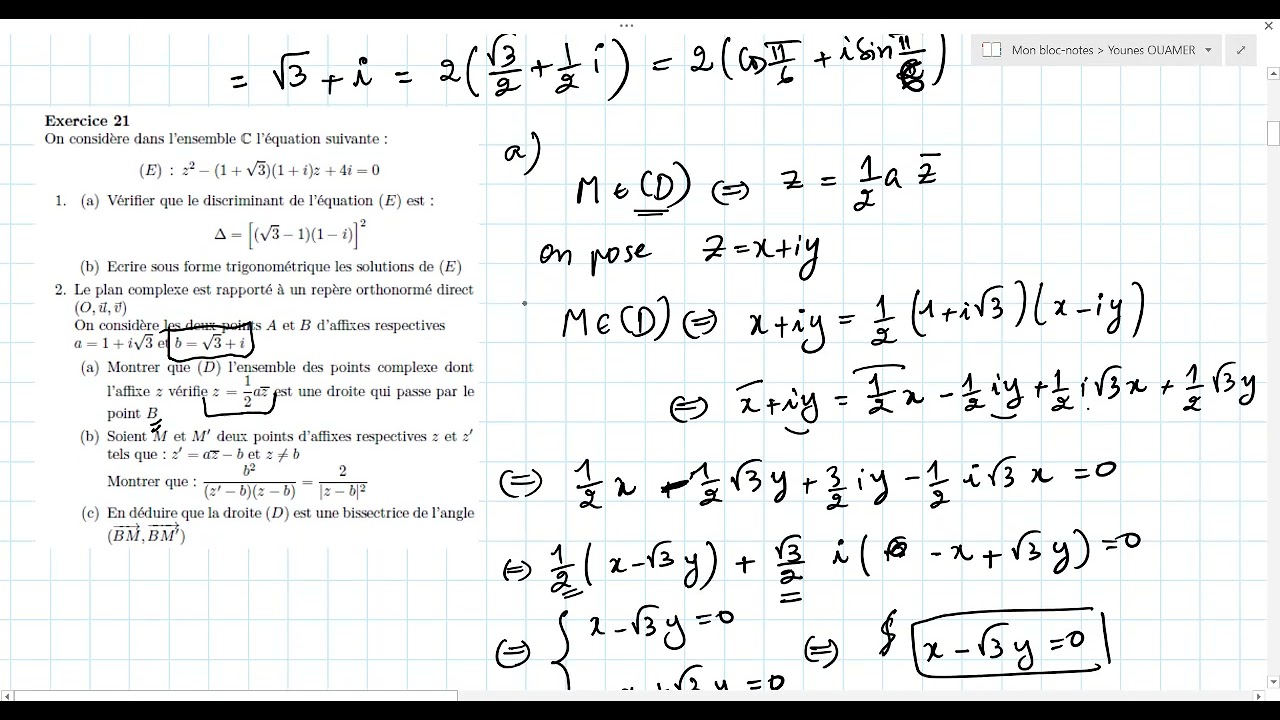 Mon bloc-notes > Younes OUAMER
= √3 + i = 2(√3/2 + 1/2 i) = 2(cos π/6 + i sin π/6)
Exercice 21
On considère dans l'ensemble ℂ l'équation suivante :
(E) : z² − (1 + √3)(1 + i)z + 4i = 0
1. (a) Vérifier que le discriminant de l'équation (E) est :
Δ = [(√3 − 1)(1 − i)]²
(b) Ecrire sous forme trigonométrique les solutions de (E)
2. Le plan complexe est rapporté à un repère orthonormé direct
(O, u⃗, v⃗)
On considère les deux points A et B d'affixes respectives
a = 1 + i√3 et b = √3 + i
(a) Montrer que (D) l'ensemble des points complexe dont
l'affixe z vérifie z = 1/2 az̅ est une droite qui passe par le
point B
(b) Soient M et M' deux points d'affixes respectives z et z'
tels que : z' = az̅ − b et z ≠ b
Montrer que : b²/((z' − b)(z − b)) = 2/|z − b|²
(c) En déduire que la droite (D) est une bissectrice de l'angle
(BM⃗, BM'⃗)
a)
M ∈ (D) ⇔ z = 1/2 a z̅
on pose z = x+iy
M ∈ (D) ⇔ x+iy = 1/2 (1+i√3)(x−iy)
⇔ x+iy = 1/2 x − 1/2 iy + 1/2 i√3x + 1/2 √3y
⇔ 1/2 x − 1/2 √3y + 3/2 iy − 1/2 i√3 x = 0
⇔ 1/2 (x−√3y) + √3/2 i(−x + √3y) = 0
⇔ { x−√3y = 0 ⇔ x − √3y = 0